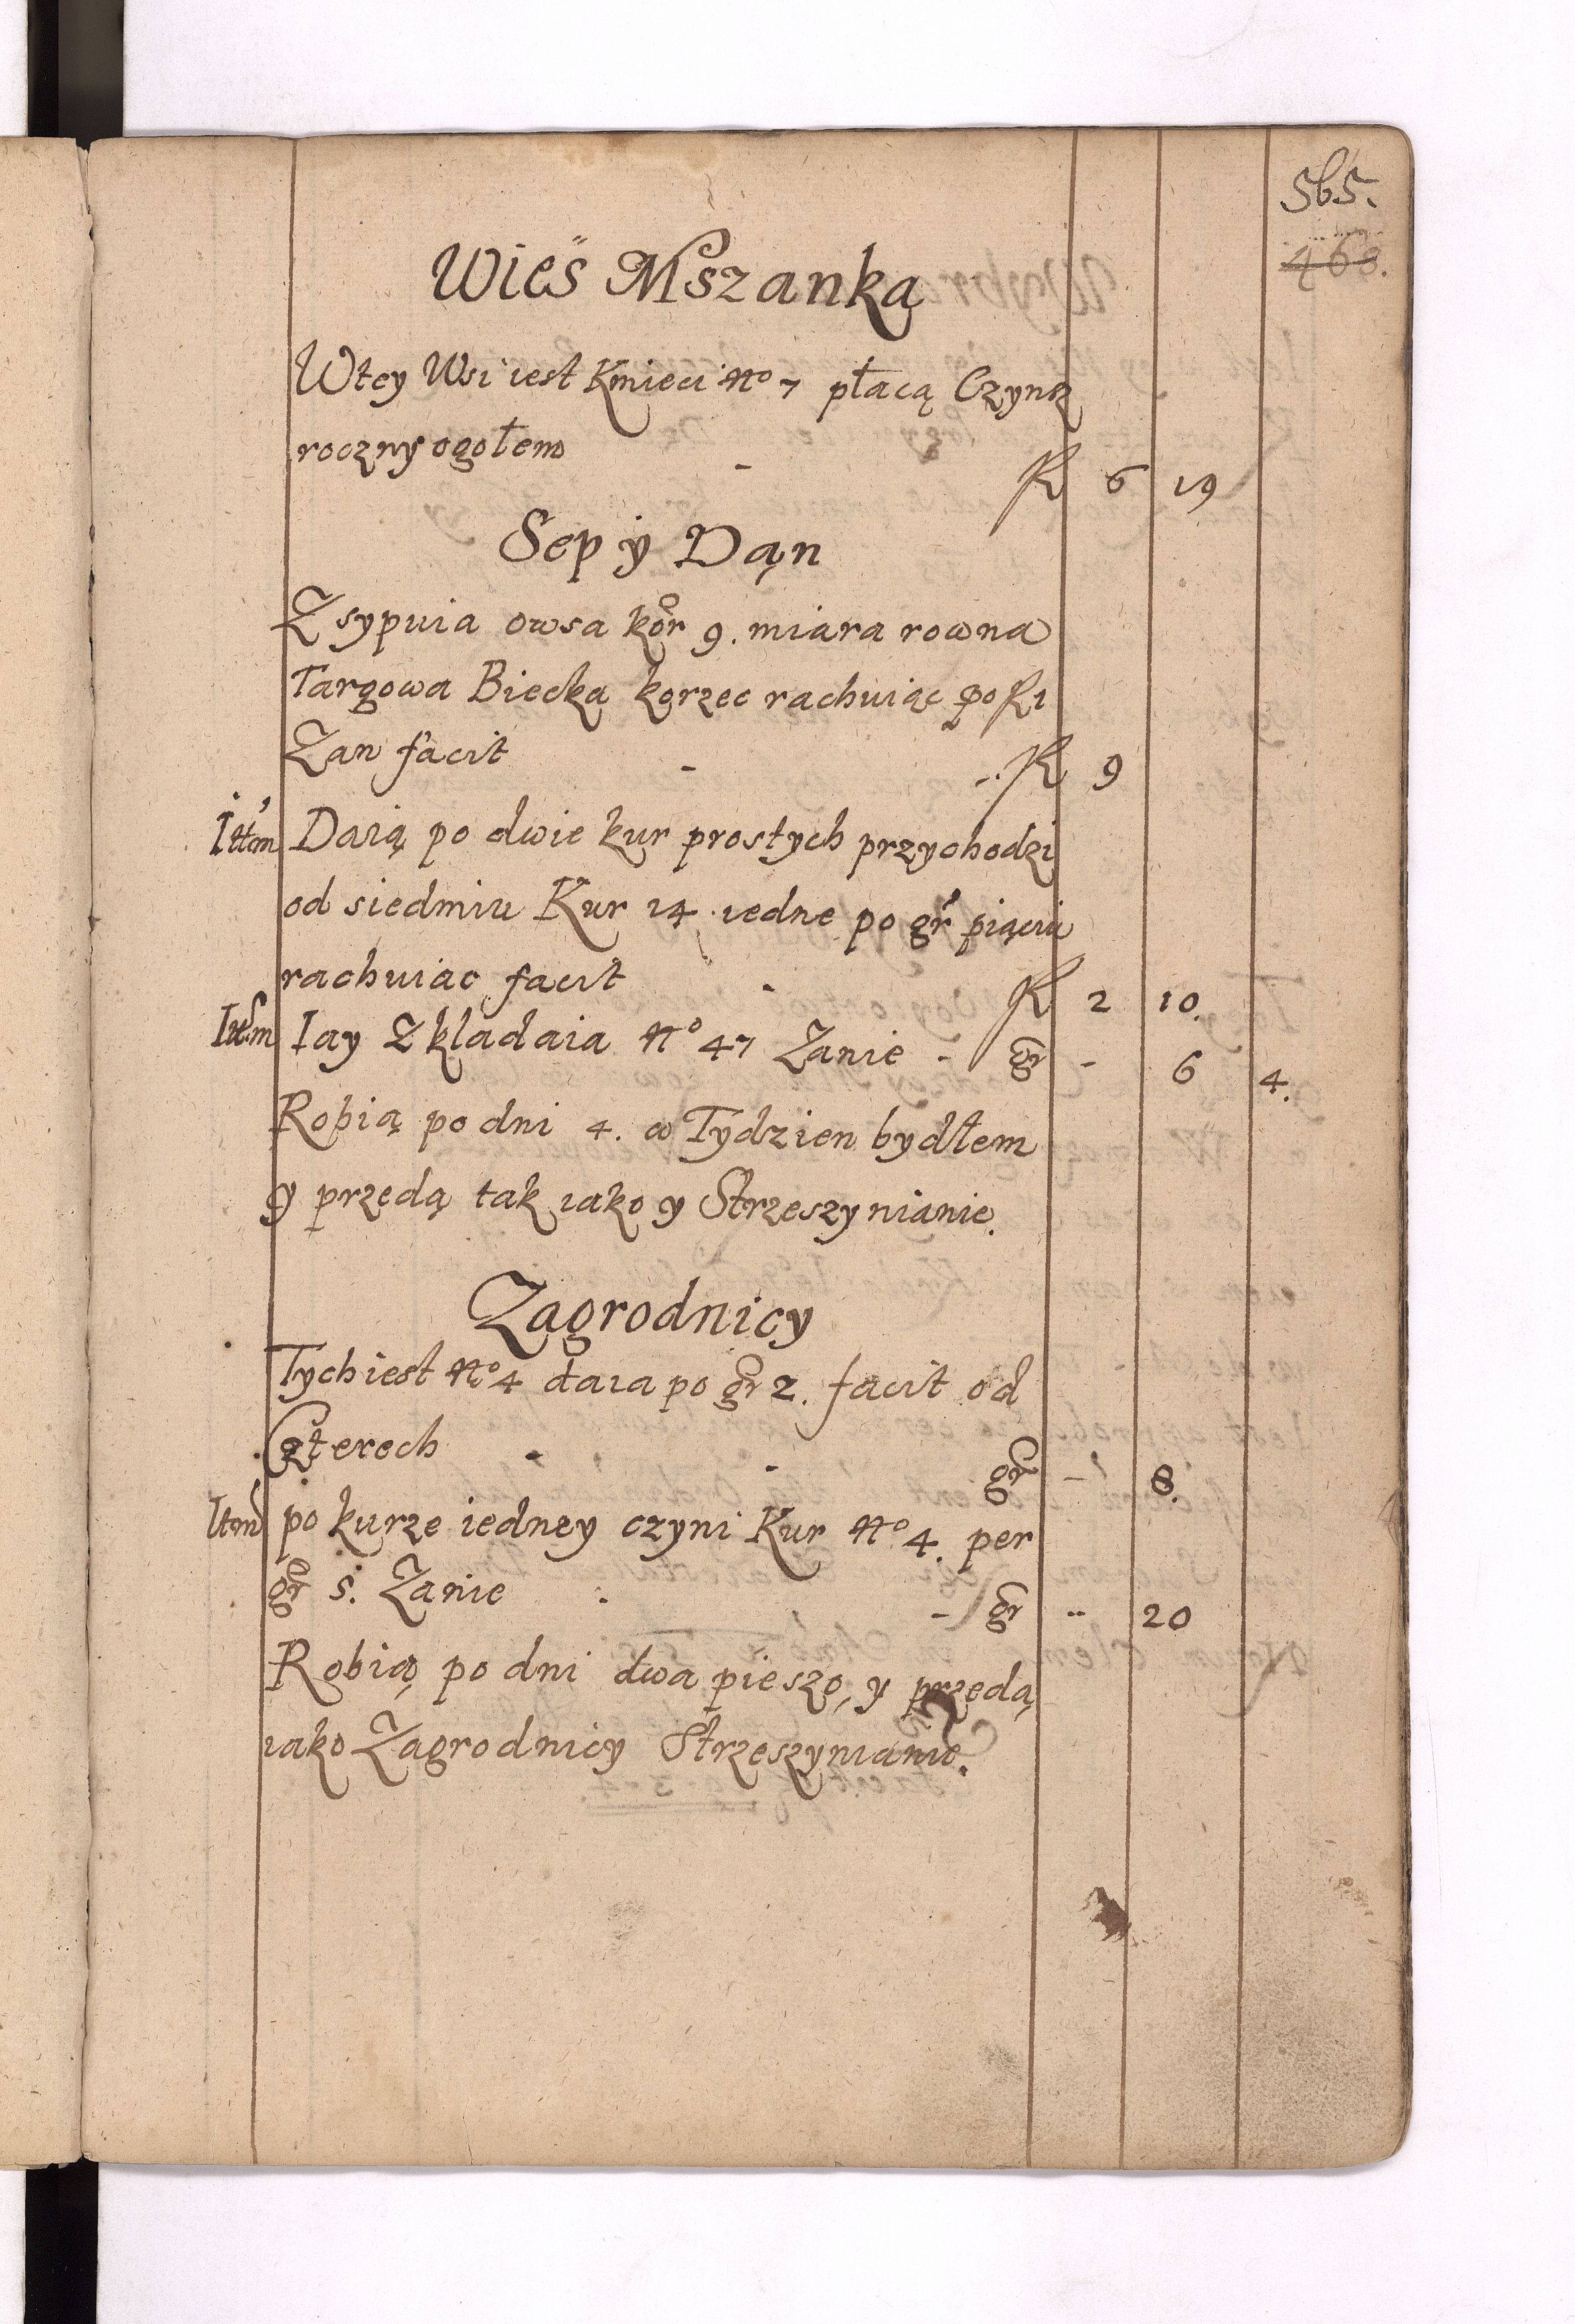 565.
468.
Wieś Mszanką
Wtey Wsi iest Kmieci No 7 płacą Czynsz
roczny ogołem - R 6 19
Sep y Dąn
Zsypuia owsa kor 9. miara rowna
Targowa Biecką korzec rachuiąc po R1
Zan facit - -. R 9
Ittem Daią po dwie kur prostych przychodzi
od siedmiu Kur 14 iedne po gr piąciu
rachuiac facit - R 2 10.
Ittem Iay Zkladaia No 47 Zanie - gr - 6 4.
Robią po dni 4. w Tydzien bydłem
y przedą tak iako y Strzeszynianie.
Zagrodnicy
Tych iest No 4 daia po gr 2. facit od
Czterech - - gr - 8.
Item po kurze iedney czyni Kur No 4. per
gr 5. Zanie - gr - 20
Robią po dni dwa pieszo, y przędą
iako Zagrodnicy Strzeszynianie.